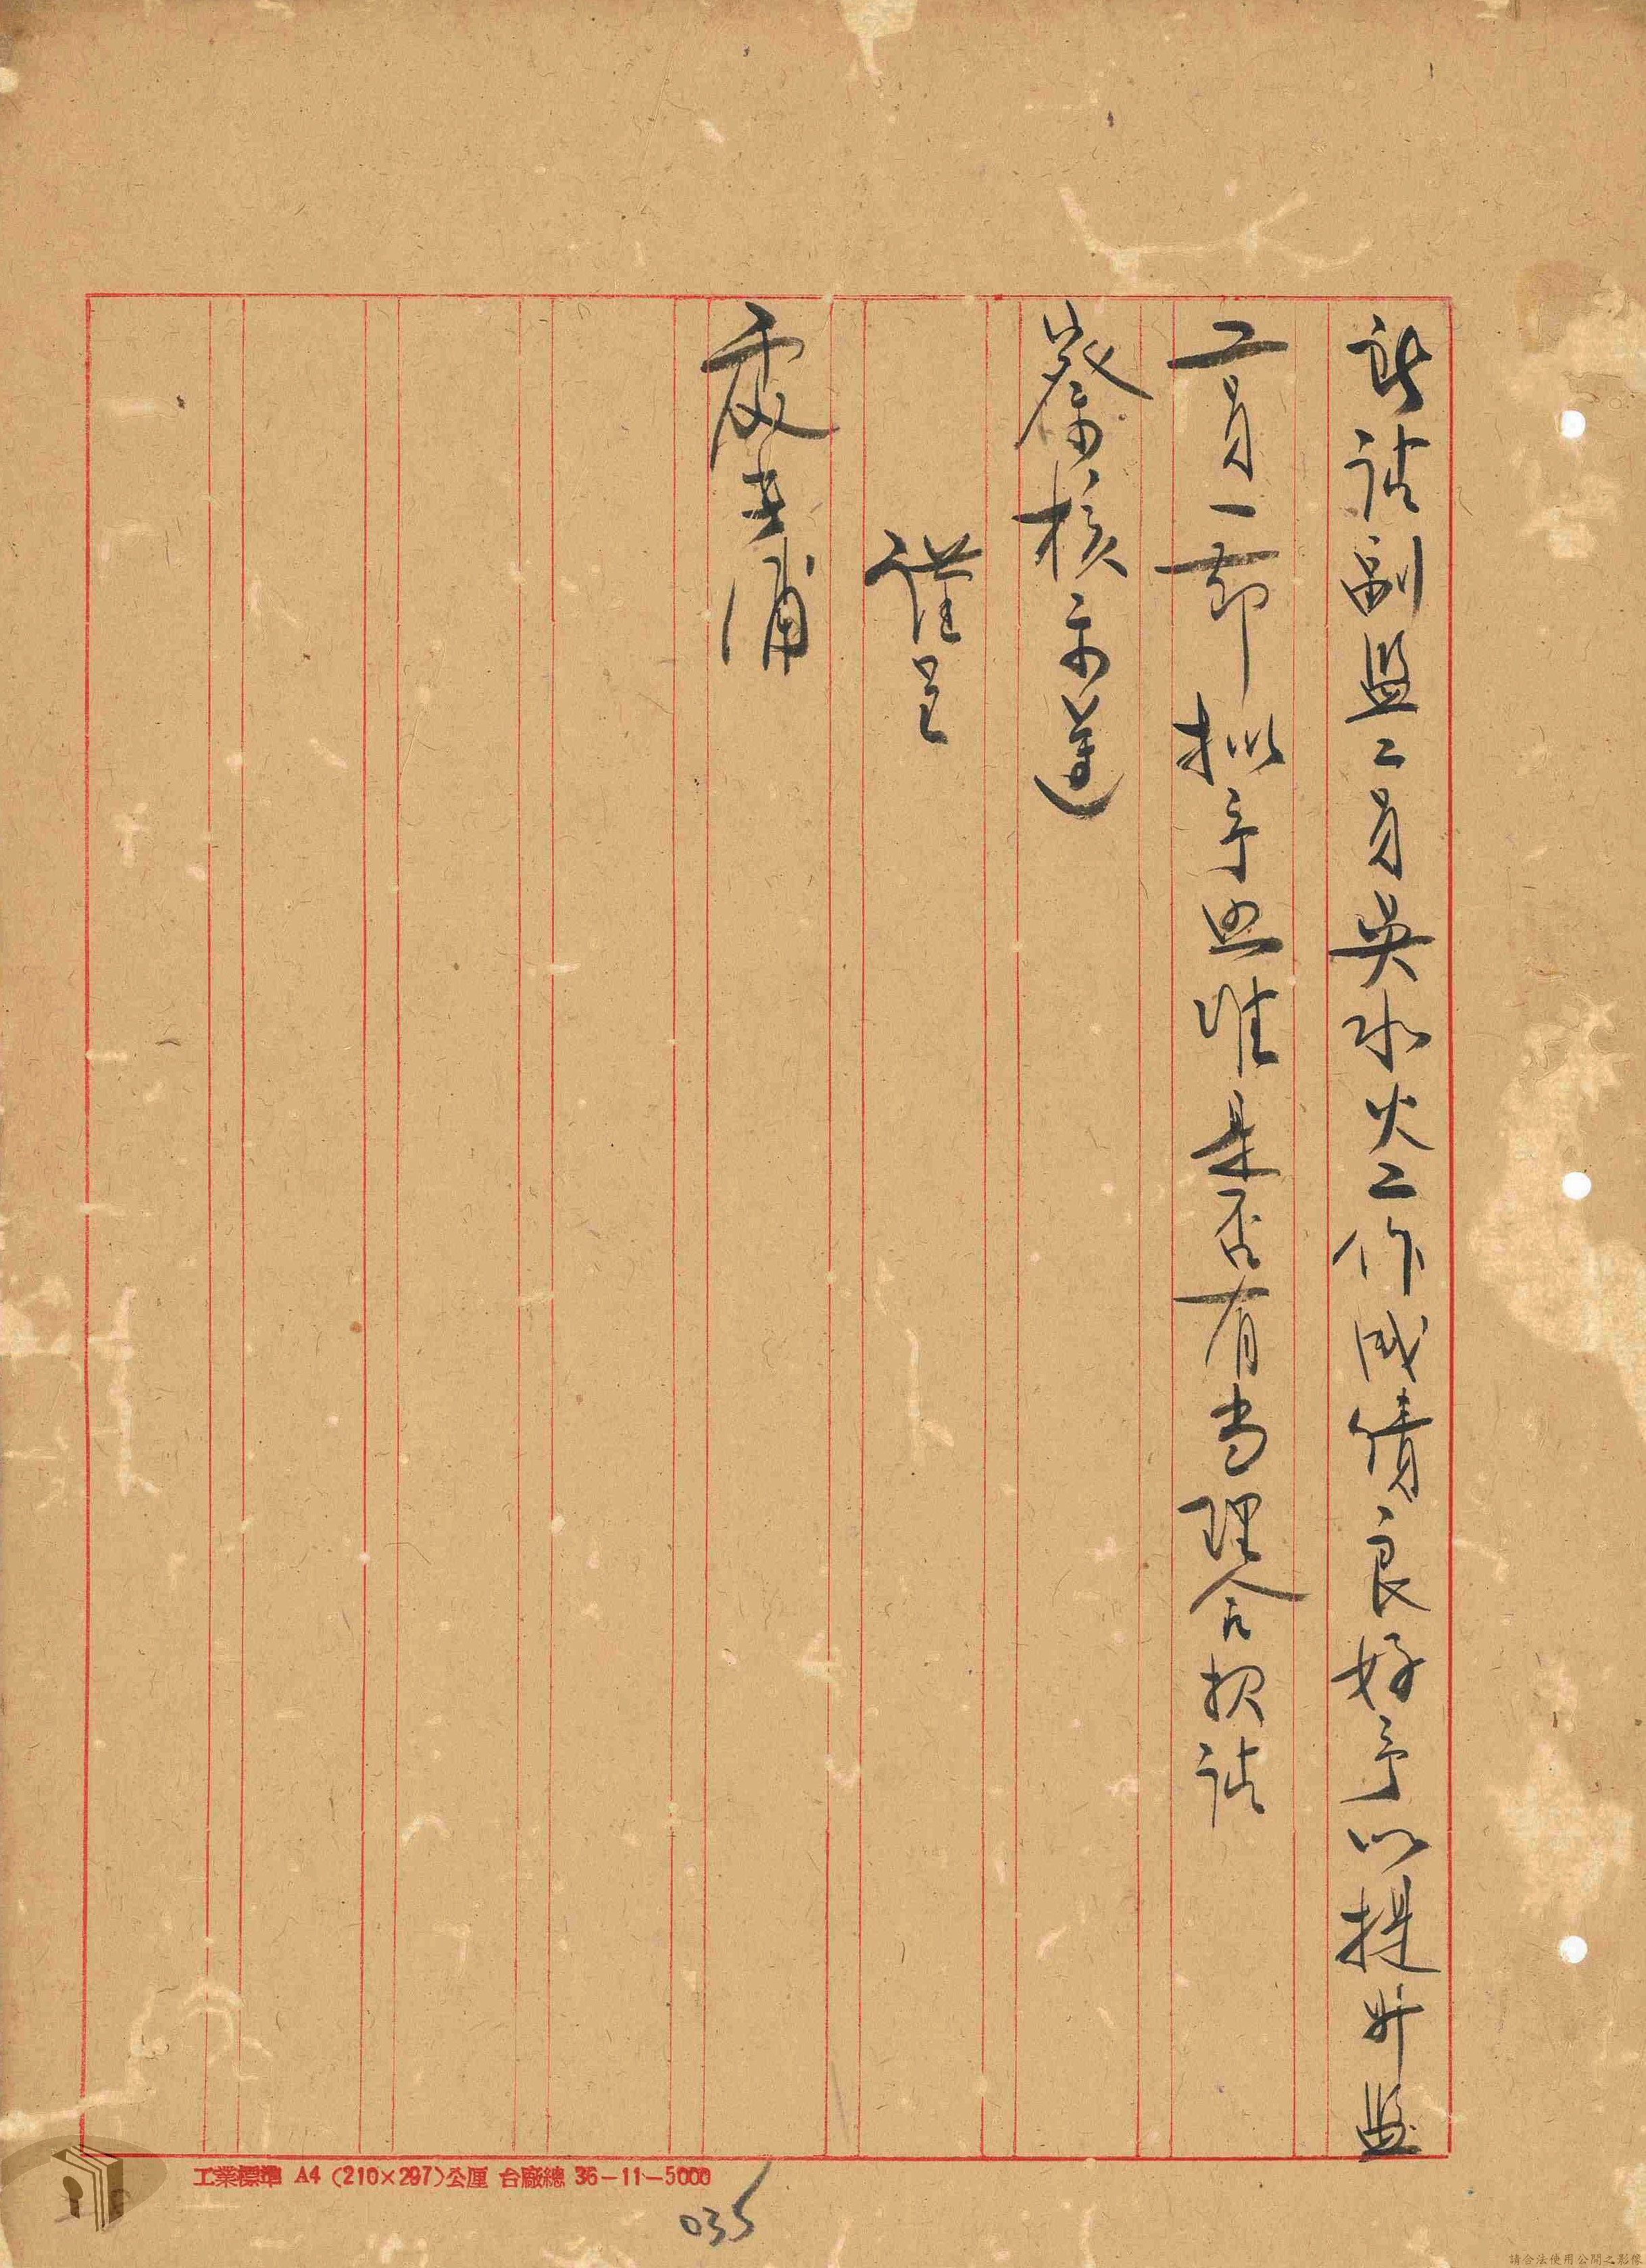 請副監工員吳水火工作成績良好予以提升監
工員一節擬予照准是否有当理合报請
察核示遵
謹呈
處長浦
工業標準 A4 (210×297)公厘 台廠總 36-11-5000
035
請合法使用公開之影像